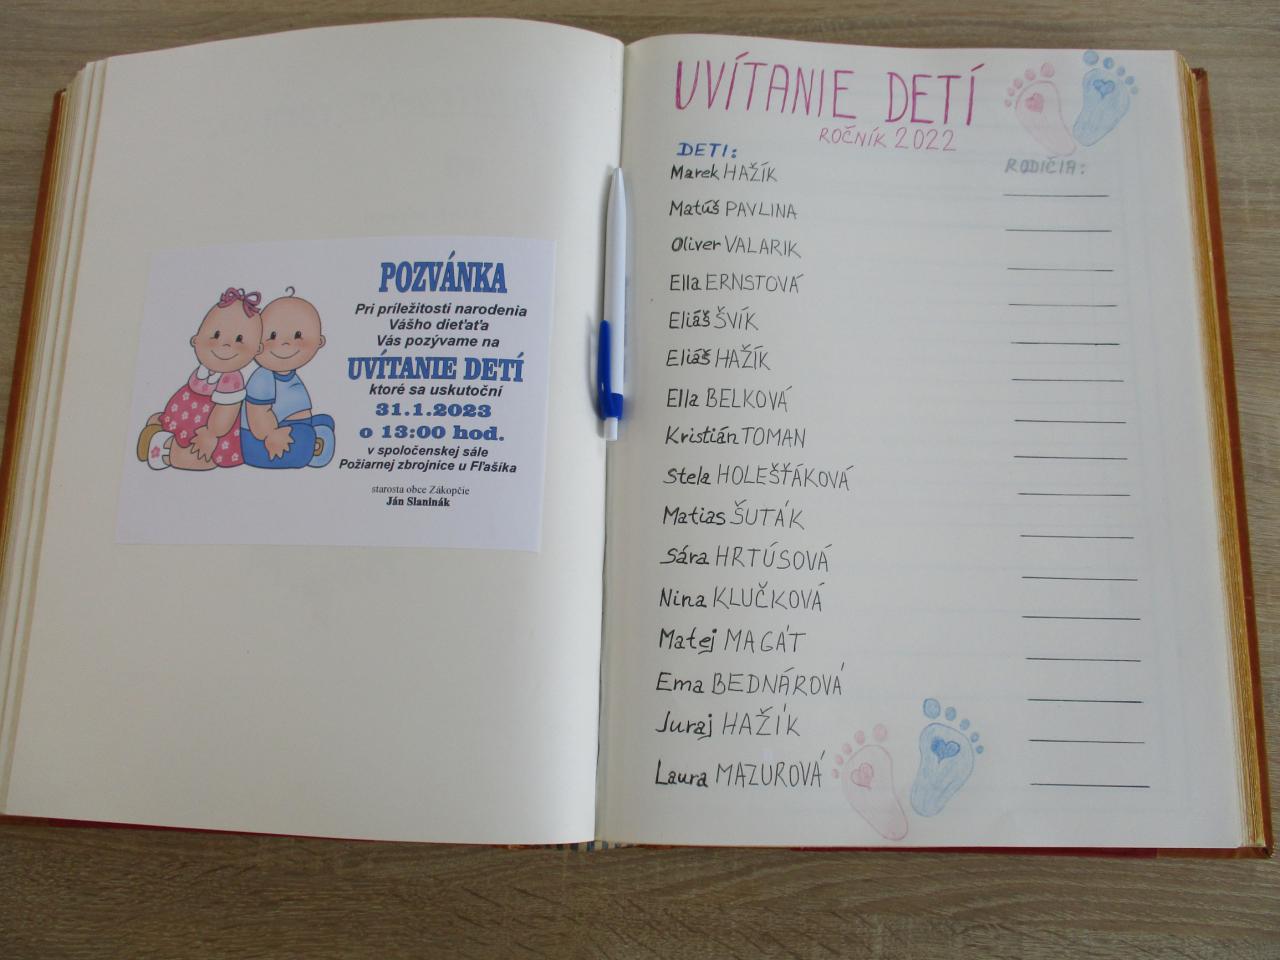 POZVÁNKA
Pri príležitosti narodenia
Vášho dieťaťa
Vás pozývame na
UVÍTANIE DETÍ
ktoré sa uskutoční
31.1.2023
o 13:00 hod.
v spoločenskej sále
Požiarnej zbrojnice u Fľašíka
starosta obce Zákopčie
Ján Slaninák
UVÍTANIE DETÍ
ROČNÍK 2022
DETI:
RODIČIA:
Marek HAŽÍK
Matúš PAVLINA
Oliver VALARIK
Ella ERNSTOVÁ
Eliáš ŠVÍK
Eliáš HAŽÍK
Ella BELKOVÁ
Kristián TOMAN
Stela HOLEŠŤÁKOVÁ
Matias ŠUTÁK
Sára HRTÚSOVÁ
Nina KLUČKOVÁ
Matej MAGÁT
Ema BEDNÁROVÁ
Juraj HAŽÍK
Laura MAZUROVÁ